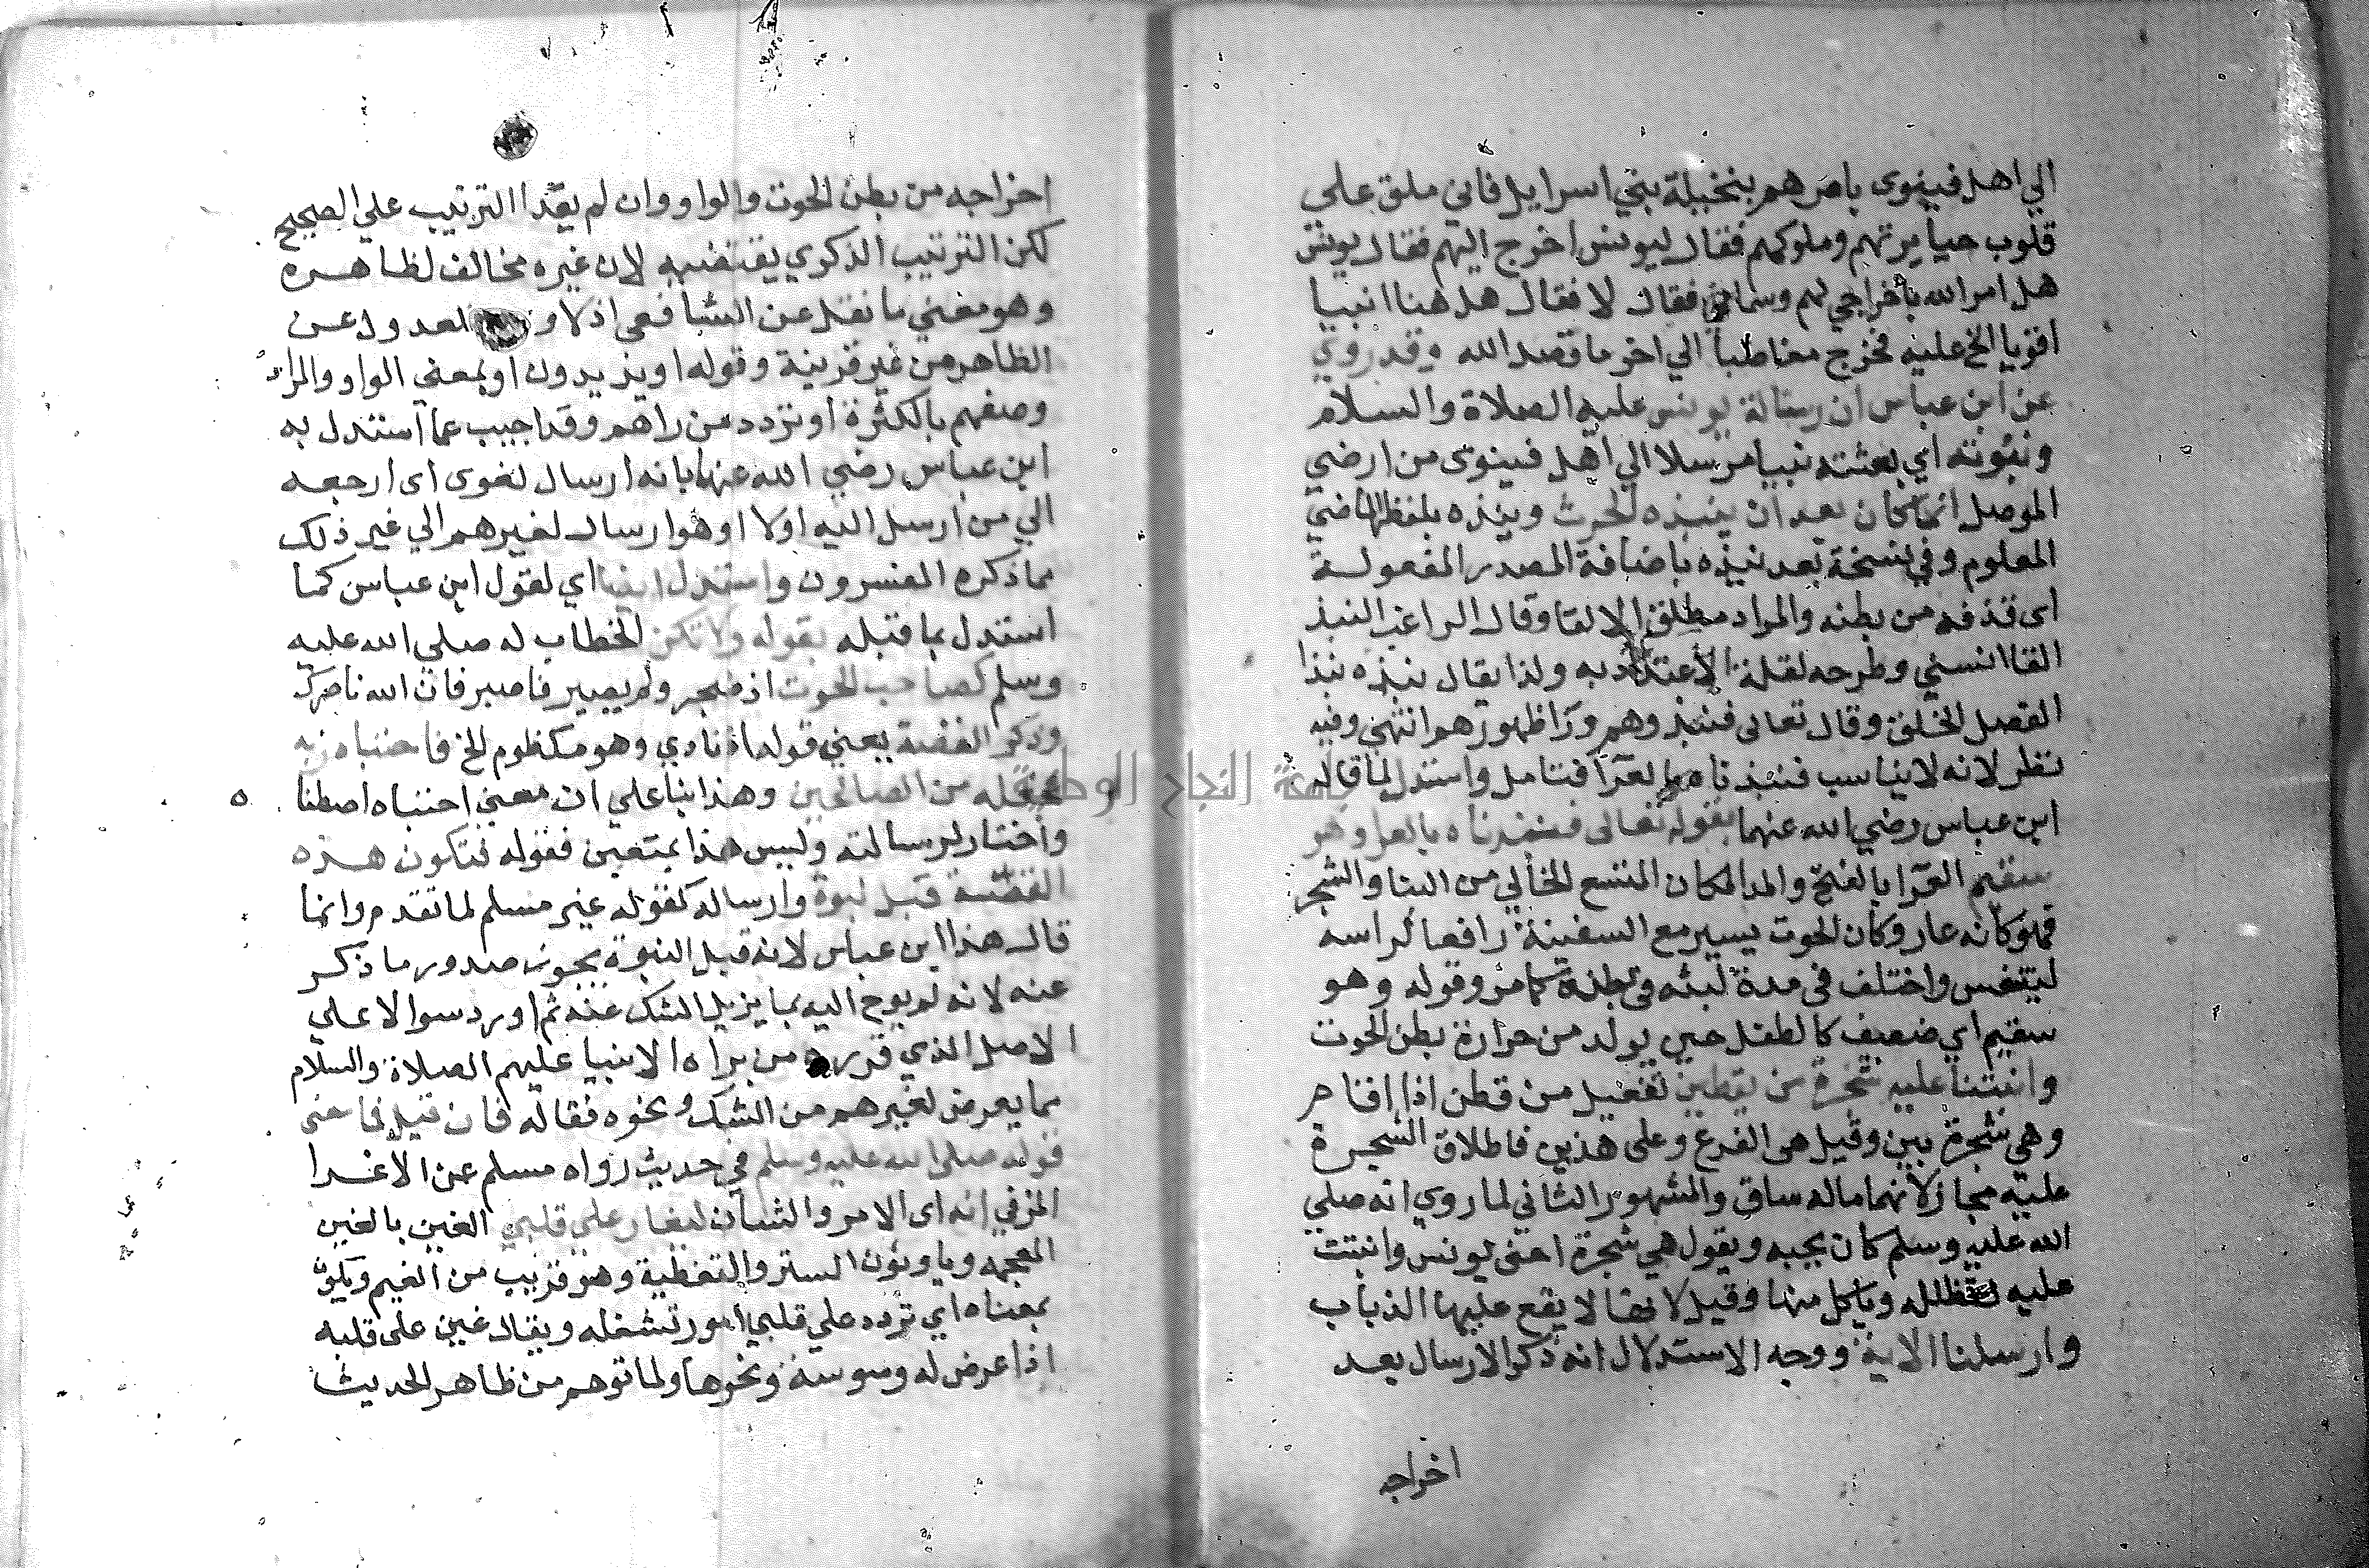 الي اهل فينوى يامرهم بتخيلة بني اسرايل فاني ملق علي
قلوب جبابرتهم وملوكهم فقال ليونس اخرج اليهم فقال يونس
هل امر الله باخراجي لهم وسماني فقال لا فقال هل هنا انبيا
اقويا الخ عليه فخرج مغاضبا الي اخر ما قصد الله وقد روي
عن ابن عباس ان رسالة يونس عليه الصلاة والسلام
ونبوته اي بعثته نبيا مرسلا الي اهل فينوى من ارضي
الموصل انما كان بعد ان ينبذه الحوت وينبذه بلفظ الماضي
المعلوم وفي نسخة بعد نبذه باضافة المصدر المفعولة
اى قذفه من بطنه والمراد مطلق الالقا وقال الراغب النبذ
القا النسئي وطرحه لقلة الاعتداد به ولذا يقال نبذه نبذا
الفصل الخلق وقال تعالى فنبذوهم ورآ ظهورهم انتهي وفيه
نظر لانه لا يناسب فنبذناه بالعرآ فتامل واستدل لما قاله
ابن عباس رضي الله عنهما بقوله تعالى فنبذناه بالعرا وهو
سقيم العرا بالفتح والمد المكان المتسع الخالي من البنا والشجر
فهو كانه عار وكان الحوت يسير مع السفينة رافعا لراسه
ليتنفس واختلف في مدة لبثه في بطنه كما مر وقوله وهو
سقيم اي ضعيف كالطفل حين يولد من حرارة بطن الحوت
وانبتنا عليه شجرة من يقطين تفعيل من قطن اذا اقام
وهي شجرة بين وقيل هى القرع وعلى هذين فاطلاق الشجرة
عليه مجاز لانهما ماله ساق والمشهور الثاني لما روي انه صلي
الله عليه وسلم كان يحبه ويقول هي شجرة اخي يونس وانبتت
عليه لتظلله وياكل منها وقيل لانها لا يقع عليها الذباب
وارسلنا الاية ووجه الاستدلال انه ذكر الارسال بعد
اخراجه
اخراجه من بطن الحوت والواو وان لم يفد الترتيب علي الصحيح
لكن الترتيب الذكري يقتضيه لان غيره مخالف لظاهره
وهو مغني ما نقل عن الشافعى اذ لا العدول عن
الظاهر من غير قرينة وقوله او يزيدون او بمعني الواو والمراد
وصفهم بالكثرة او تردد من راهم وقد اجيب عما استدل به
ابن عباس رضي الله عنهما بانه ارسال لغوى اى ارجعه
الي من ارسل اليه اولا او هو ارسال لغيرهم الي غير ذلك
مما ذكره المفسرون واستدل ايضا اي لقول ابن عباس كما
استدل بما قبله بقوله ولا تكن الخطاب له صلي الله عليه
وسلم كصاحب الحوت اذ ضجر ولم يصبر فاصبر فان الله ناصرك
وذكر القصة يعني قوله اذ نادي وهو مكظوم الخ فاجتباه ربه
فجعله من الصالحين وهذا بنا علي ان معني اجتباه اصطفا ه
واختار لرسالته وليس هذا بمتعين فقوله فتكون هذه
القصة قبل نبوة وارساله كقوله غير مسلم لما تقدم وانما
قال هذا ابن عباس لانه قبل النبوة يجوز صدور ما ذكر
عنه لانه لم يوح اليه بما يزيل الشك عنه ثم اورد سوالا علي
الاصل الذي قرره من براه الانبيا عليهم الصلاة والسلام
مما يعرض لغيرهم من الشك ونحوه فقاله فان قيل فما معنى
قوله صلي الله عليه وسلم في حديث رواه مسلم عن الاغر
المزني انه اى الامر والشان ليغان علي قلبي الغين بالغين
المعجمه ويا ونون الستر والتغطية وهو قريب من الغيم ويكون
بمعناه اي تردد علي قلبي امور تشغله ويقال غين على قلبه
اذا عرض له وسوسة ونحوها ولما توهم من ظاهر الحديث
جامعة النجاح الوطنية